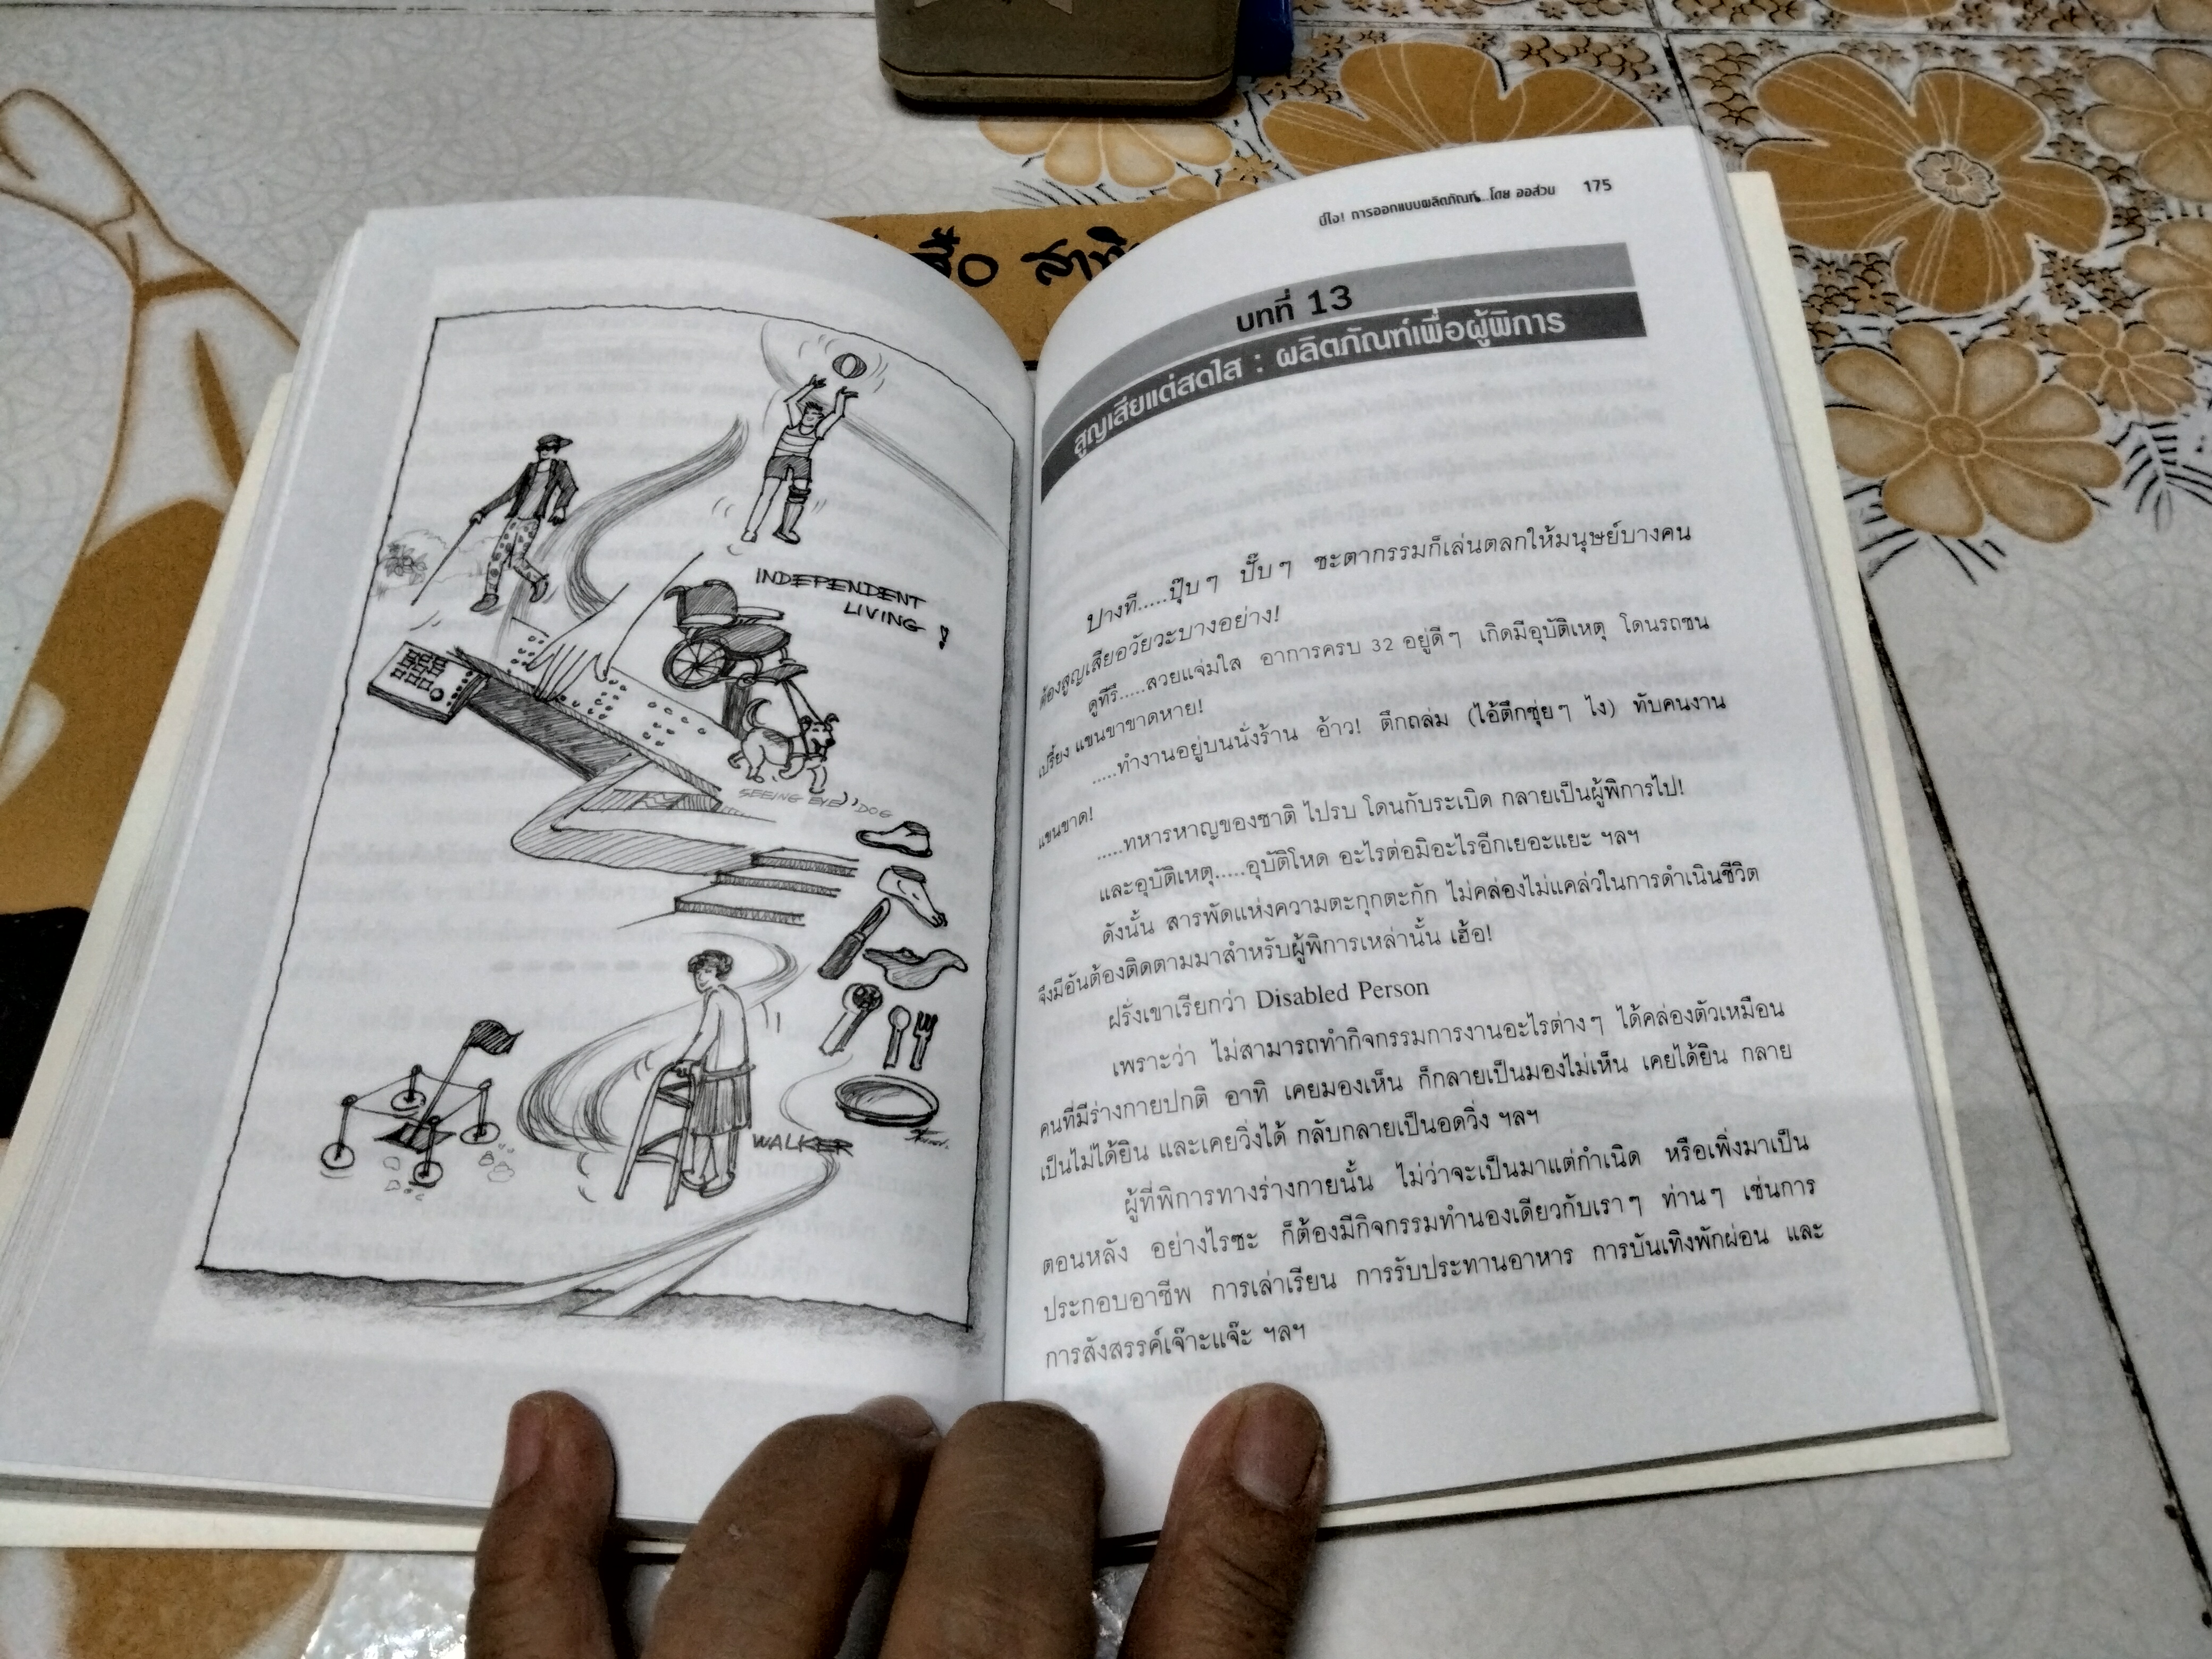 สื้อ สาทิ
INDEPENDENT
LIVING !
SEEING EYE DOG
WALKER
นี่ไง! การออกแบบผลิตภัณฑ์...โดย ออส่วน 175
บทที่ 13
สูญเสียแต่สดใส : ผลิตภัณฑ์เพื่อผู้พิการ
บางที.....ปุ๊บๆ ปั๊บๆ ชะตากรรมก็เล่นตลกให้มนุษย์บางคน
ต้องสูญเสียอวัยวะบางอย่าง!
ดูทีรึ.....สวยแจ่มใส อาการครบ 32 อยู่ดีๆ เกิดมีอุบัติเหตุ โดนรถชน
เปรี้ยง แขนขาขาดหาย!
.....ทำงานอยู่บนนั่งร้าน อ้าว! ตึกถล่ม (ไอ้ตึกซุ่ยๆ ไง) ทับคนงาน
แขนขาด!
.....ทหารหาญของชาติ ไปรบ โดนกับระเบิด กลายเป็นผู้พิการไป!
และอุบัติเหตุ.....อุบัติโหด อะไรต่อมิอะไรอีกเยอะแยะ ฯลฯ
ดังนั้น สารพัดแห่งความตะกุกตะกัก ไม่คล่องไม่แคล่วในการดำเนินชีวิต
จึงมีอันต้องติดตามมาสำหรับผู้พิการเหล่านั้น เฮ้อ!
ฝรั่งเขาเรียกว่า Disabled Person
เพราะว่า ไม่สามารถทำกิจกรรมการงานอะไรต่างๆ ได้คล่องตัวเหมือน
คนที่มีร่างกายปกติ อาทิ เคยมองเห็น ก็กลายเป็นมองไม่เห็น เคยได้ยิน กลาย
เป็นไม่ได้ยิน และเคยวิ่งได้ กลับกลายเป็นอดวิ่ง ฯลฯ
ผู้ที่พิการทางร่างกายนั้น ไม่ว่าจะเป็นมาแต่กำเนิด หรือเพิ่งมาเป็น
ตอนหลัง อย่างไรซะ ก็ต้องมีกิจกรรมทำนองเดียวกับเราๆ ท่านๆ เช่นการ
ประกอบอาชีพ การเล่าเรียน การรับประทานอาหาร การบันเทิงพักผ่อน และ
การสังสรรค์เจ๊าะแจ๊ะ ฯลฯ